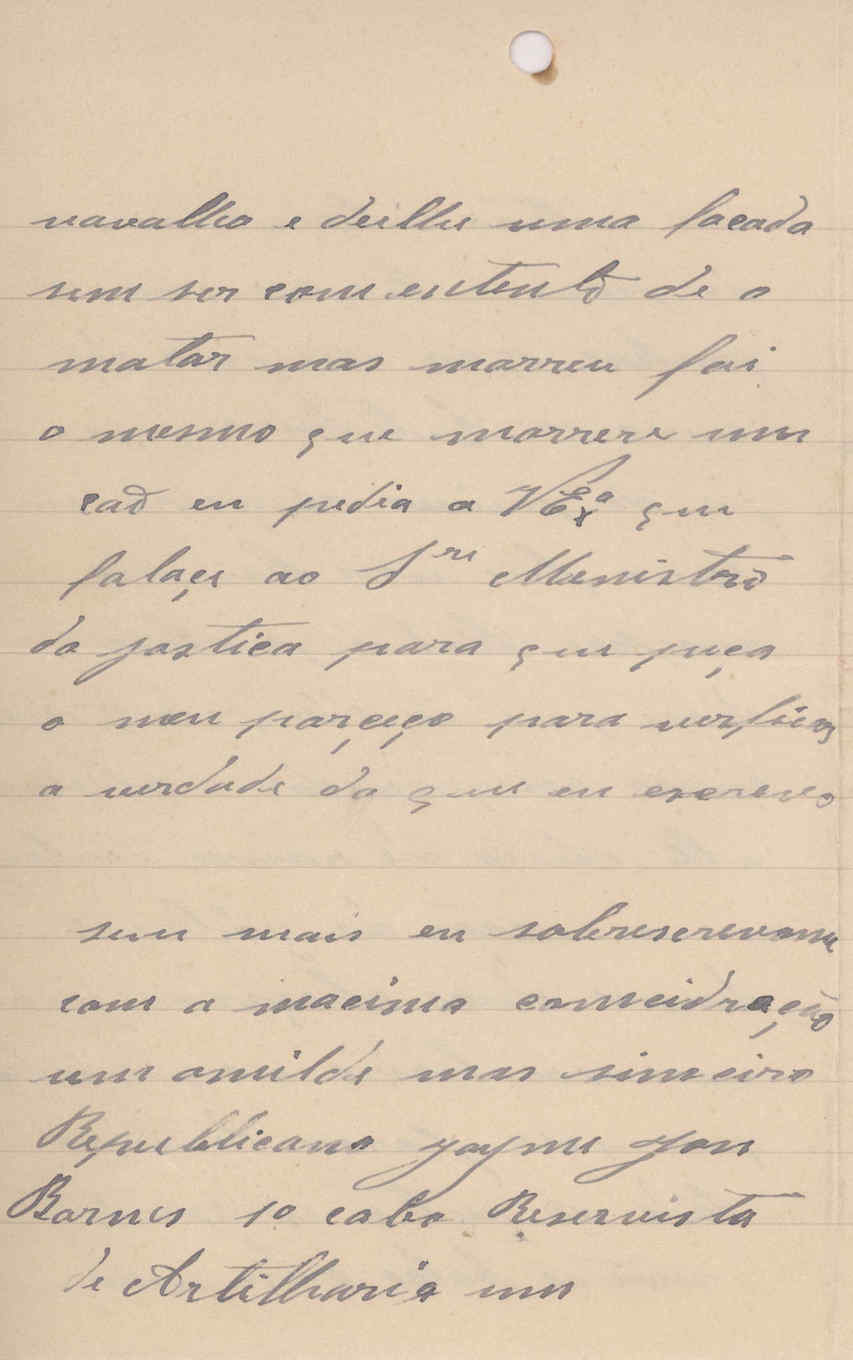 navalha e deilhe uma facada
sem ser com entento de o
matar mas morreu foi
o mesmo que morrere um
cão eu pedia a VExª que
falaçe ao Sre Menistro
da jostica para que peça
o meu parçeço para verficar
a verdade do que eu escrevo
sem mais eu sobreserevome
com a macima comcidração
um omilde mas simceiro
Republicano Jayme Jon
Bornes 1º cabo Reservista
de Artilharia um